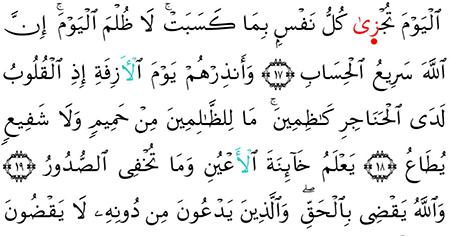 اَ۬لْيَوْمَ تُجْز۪يٰ كُلُّ نَفْسِۢ بِمَا كَسَبَتْۖ لَا ظُلْمَ اَ۬لْيَوْمَۖ إِنَّ
اَ۬للَّهَ سَرِيعُ اُ۬لْحِسَابِ ١٧ وَأَنذِرْهُمْ يَوْمَ اَ۬لَازِفَةِ إِذِ اِ۬لْقُلُوبُ
لَدَى اَ۬لْحَنَاجِرِ كَٰظِمِينَۖ مَا لِلظَّٰلِمِينَ مِنْ حَمِيمٖ وَلَا شَفِيعٖ
يُطَاعُ ١٨ يَعْلَمُ خَآئِنَةَ اَ۬لَاعْيُنِ وَمَا تُخْفِي اِ۬لصُّدُورُ ١٩
وَاللَّهُ يَقْضِي بِالْحَقِّۖ وَالَّذِينَ يَدْعُونَ مِن دُونِهِۦ لَا يَقْضُونَ